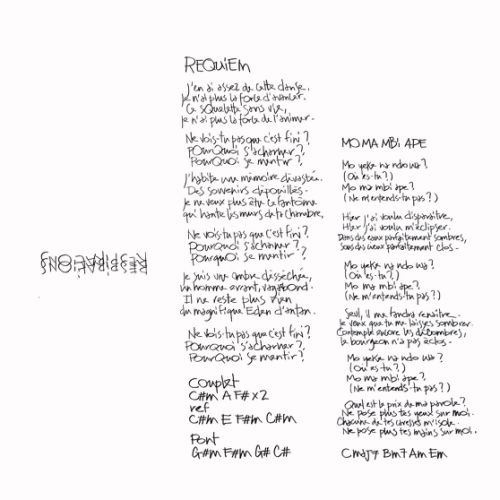 REQUIEM
J'en ai assez de cette danse.
Je n'ai plus la force d'avancer.
Ce squelette sans vie,
je n'ai plus la force de l'animer.
Ne vois-tu pas que c'est fini ?
Pourquoi s'acharner ?
Pourquoi se mentir ?
J'habite une mémoire dévastée.
Des souvenirs dépouillés.
Je ne veux plus être ce fantôme
qui hante les murs de ta chambre.
Ne vois-tu pas que c'est fini ?
Pourquoi s'acharner ?
Pourquoi se mentir ?
Je suis une ombre desséchée,
un homme errant, vagabond.
Il ne reste plus rien
du magnifique Eden d'antan.
Ne vois-tu pas que c'est fini ?
Pourquoi s'acharner ?
Pourquoi se mentir ?
Couplet
C#m A F# x2
ref
C#m E F#m C#m
Pont
G#m F#m G# C#
MO MA MBI APE
Mo yeke na ndo wa ?
(Où es-tu ?)
Mo ma mbi ape ?
(Ne m'entends-tu pas ?)
Hier j'ai voulu disparaître,
Hier j'ai voulu m'éclipser.
Dans des eaux parfaitement sombres,
Sous des cieux parfaitement clos.
Mo yeke na ndo wa ?
(Où es-tu ?)
Mo ma mbi ape ?
(Ne m'entends-tu pas ?)
Seul, il me faudra renaître.
Je veux que tu me laisses sombrer.
Contemple encore les décombres,
le bourgeon n'a pas éclos.
Mo yeke na ndo wa ?
(Où es-tu ?)
Mo ma mbi ape ?
(Ne m'entends-tu pas ?)
Quel est le prix de ma parole ?
Ne pose plus tes yeux sur moi.
Chacune de tes caresses m'isole.
Ne pose plus tes mains sur moi.
Cmaj7 Bm7 Am Em
RESPIRATIONS